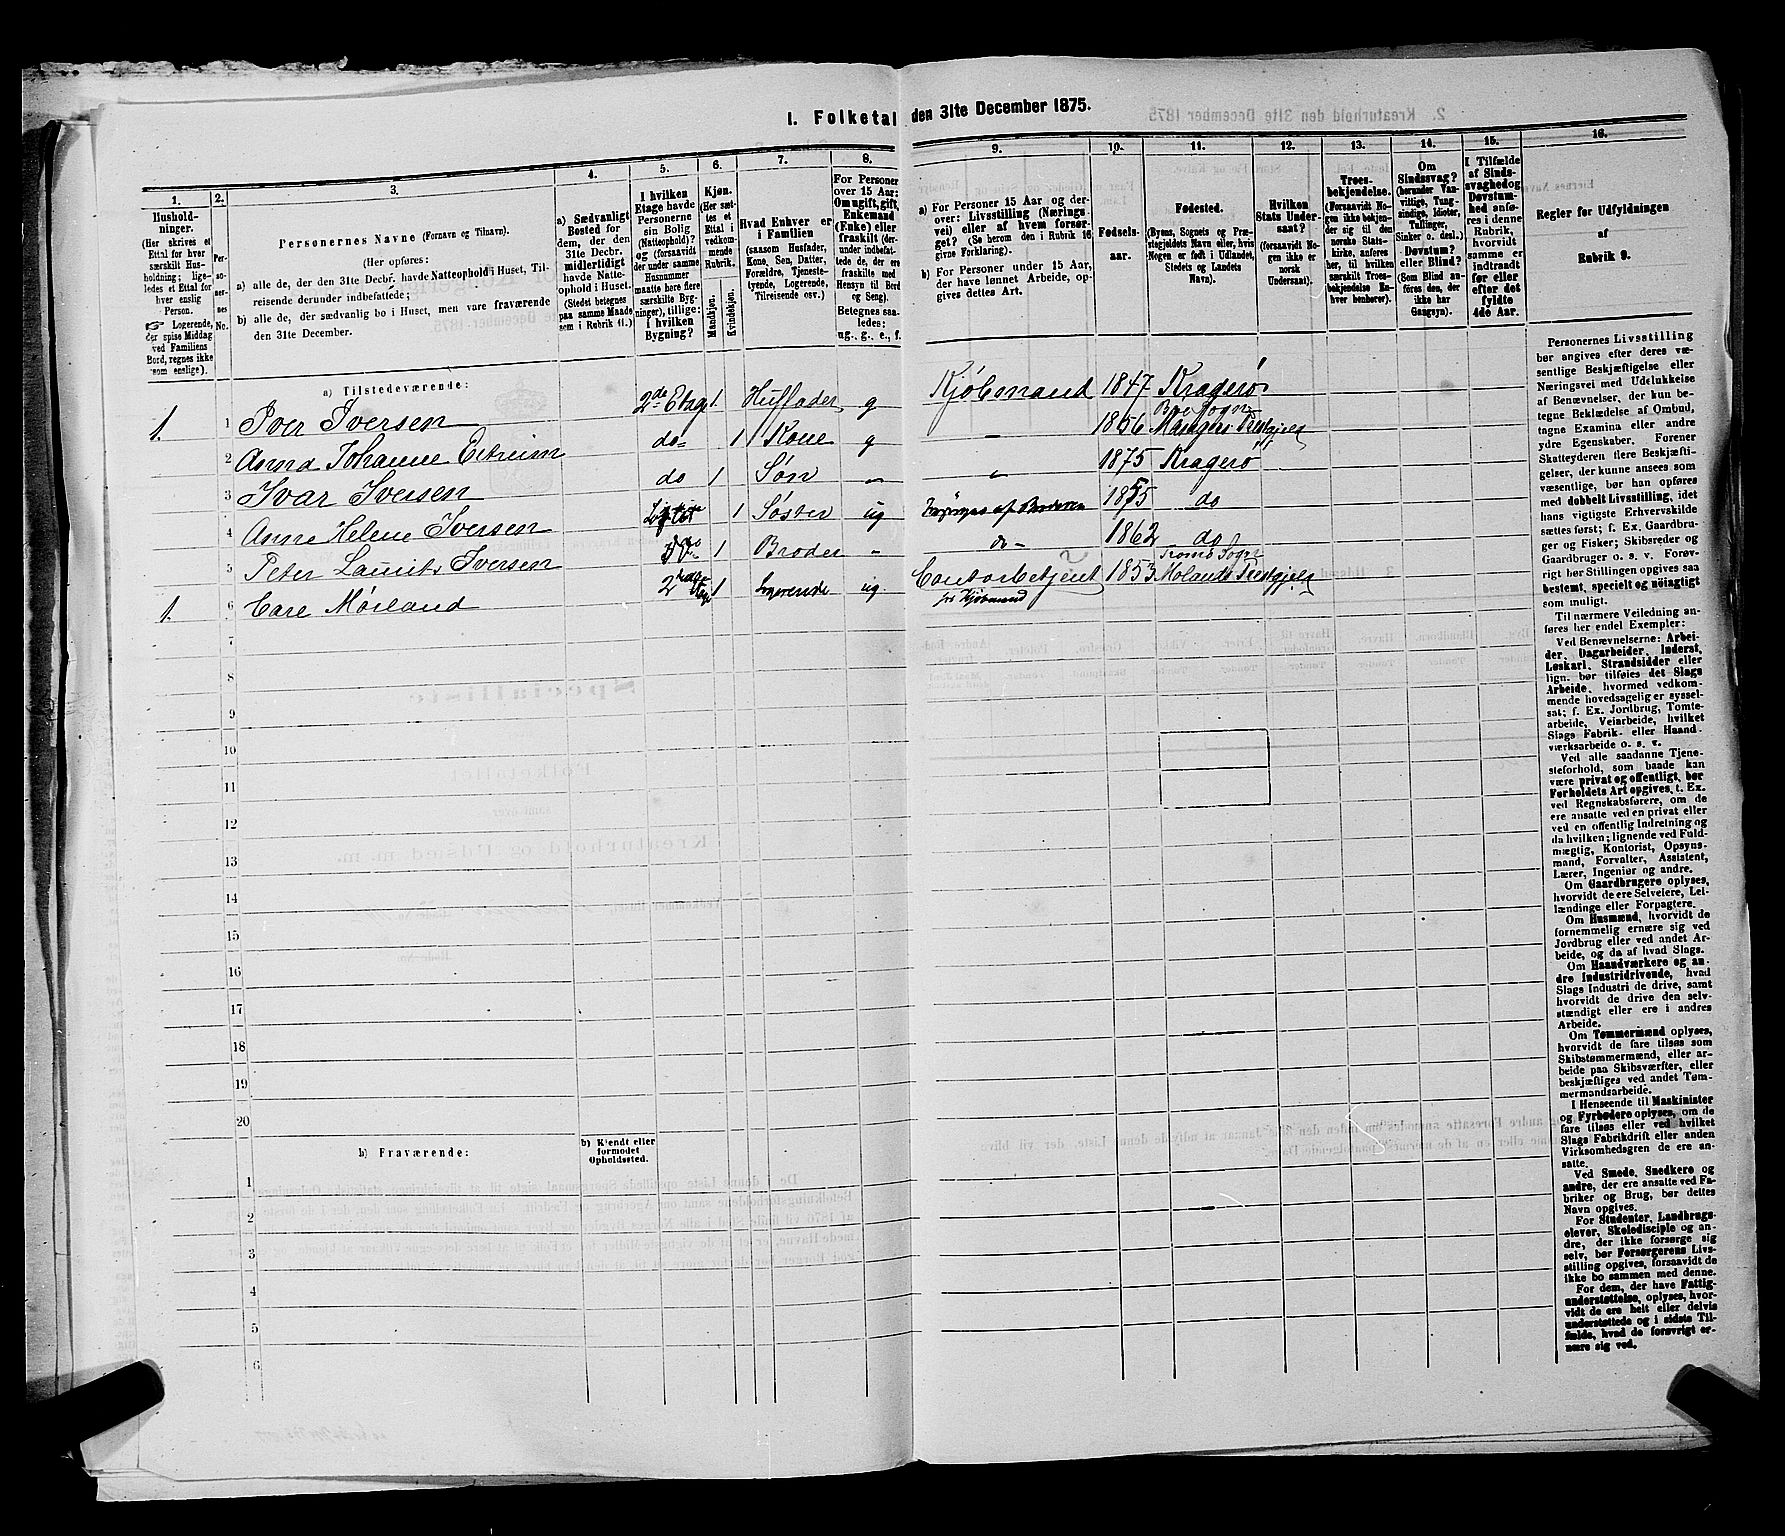 1. Folketal den 31te December 1875.
1. 2. 3. 4. 5. 6. 7. 8. 9. 10. 11. 12. 13. 14. 15. 16.
Hushold-
ninger.
(Her skrives et
Ettal for hver
særskilt Hus-
holdning; lige-
ledes et Ettal for
hver enslig
Person.
☞ Logerende,
der spise Middag
ved Familiens
Bord, regnes ikke
som enslige).
Per-
so-
ner-
nes
No.
Personernes Navne (Fornavn og Tilnavn).
(Her opføres:
a) alle de, der den 31te Decbr. havde Natteophold i Huset, Til-
reisende derunder indbefattede;
b) alle de, der sædvanlig bo i Huset, men vare fraværende
den 31te December.
a) Sædvanligt
Bosted for
dem, der den
31te Decbr.
midlertidigt
havde Natte-
ophold i Huset.
(Stedet betegnes
paa samme Maade
som i Rubrik 11.)
I hvilken
Etage havde
Personerne
sin Bolig
(Natteophold)?
og (forsaavidt
der under samme
Husnummer
maatte høre flere
særskilte Byg-
ninger), tillige:
i hvilken
Bygning?
Kjøn.
(Her sæt-
tes et
Ettal i
vedkom-
mende
Rubrik.
Mandkjøn.
Kvindekjøn.
Hvad Enhver er
i Familien
(saasom Husfader,
Kone, Søn, Datter,
Forældre, Tjeneste-
tyende, Logerende,
Tilreisende osv.)
For Personer
over 15 Aar:
Om ugift, gift,
Enkemand
(Enke) eller
fraskilt (der-
under indbefat-
tede de, der ere
fraskilte med
Hensyn til Bord
og Seng).
Betegnes saa-
ledes:
ug., g., e., f.
a) For Personer 15 Aar og der-
over: Livsstilling (Nærings-
vei) eller af hvem forsør-
get? (Se herom den i Rubrik 16
givne Forklaring).
b) For Personer under 15 Aar,
der have lønnet Arbeide, op-
gives dettes Art.
Fødsels-
aar.
Fødested.
(Byens, Sognets og Præ-
stegjeldets Navn eller, hvis
Nogen er født i Udlandet,
Stedets og Landets
Navn).
Hvilken
Stats Under-
saat?
(forsaavidt No-
gen ikke er
norsk
Undersaat).
Troes-
bekjendelse.
(Forsaavidt No-
gen ikke bekjen-
der sig til den
norske Stats-
kirke, anføres
her, til hvilken
særskilt Troes-
bekjendelse En-
hver henhører).
Om
Sindssvag?
(herunder Van-
vittige, Tung-
sindige, Idioter,
Tullinger,
Sinker o. desl.)
Døvstum?
eller Blind?
(Som Blind an-
føres den, der
ikke har
Gangsyn).
I Tilfælde
af Sinds-
svaghed og
Døvstum-
hed anfø-
res i denne
Rubrik,
hvorvidt
samme er
indtraadt
før eller
efter det
fyldte
4de Aar.
Regler for Udfyldningen
af
Rubrik 9.
a) Tilstedeværende:
1. 1 Iver Iversen 2de Etage 1. Husfader g Kjøbmand 1847 Kragerø
2 Anna Johanne Eitreim do 1 Kone g „ 1856 Bøe Sogn Præstgjeld
3 Ivar Iversen do 1 Søn „ „ 1875 Kragerø
4 Anne Helene Iversen Loftet 1 Søster ug Forsørges af Broderen 1855 do
5 Peter Laurits Iversen 1 Broder „ do 1862 do
1. 6 Care Mørland 2den Etage 1 Logerende ug. Contorbetjent 1853 Tromø Sogn Molands Prestgjeld
for Kjøbmand
7
8
9
10
11
12
13
14
15
16
17
18
19
20
b) Fraværende:
b) Kjendt eller
formodet
Opholdssted.
1
2
3
4
5
6
Personernes Livsstilling
bør angives efter deres væ-
sentlige Beskjæftigelse eller
Næringsvei med Udelukkelse
af Benævnelser, der kun be-
tegne Beklædelse af Ombud,
tagne Examina eller andre
ydre Egenskaber. Forener
Skatteyderen flere Beskjæfti-
gelser, der kunne ansees som
væsentlige, bør han opføres
med dobbelt Livsstilling, idet
hans vigtigste Erhvervskilde
sættes først; f. Ex. Gaardbru-
ger og Fisker; Skibsreder og
Gaardbruger o. s. v. Forøv-
rigt bør Stillingen opgives saa
bestemt, specielt og nøiagtigt
som muligt.
Til nærmere Veiledning an-
føres her endel Exempler:
Ved Benævnelserne: Arbei-
der, Dagarbeider, Inderst,
Løskarl, Strandsidder eller
lign. bør tilføies det Slags
Arbeide, hvormed vedkom-
mende hovedsagelig er syssel-
sat; f. Ex. Jordbrug, Tomte-
arbeide, Veiarbeide, hvilket
Slags Fabrik- eller Haand-
værksarbeide o. s. v.
Ved alle saadanne Tjene-
steforhold, som baade kan
være privat og offentligt, bør
Forholdets Art opgives, t. Ex.
ved Regnskabsførere, om de
ere ansatte ved en privat eller
ved en offentlig Indretning og
da hvilken; lignende ved Fuld-
mægtig, Kontorist, Opsyns-
mand, Forvalter, Assistent,
Lærer, Ingeniør og andre.
Om Gaardbrugere oplyses,
hvorvidt de ere Selveiere, Lei-
lændinge eller Forpagtere.
Om Husmænd, hvorvidt de
fornemmelig ernære sig ved
Jordbrug eller ved andet Ar-
beide, og da af hvad Slags.
Om Haandværkere og an-
dre Industridrivende, hvad
Slags Industri de drive, samt
hvorvidt de drive den selv-
stændigt eller ere i andres
Arbeide.
Om Tømmermænd oplyses,
hvorvidt de fare tilsøs som
Skibstømmermænd, eller ar-
beide paa Skibsværfter, eller
beskjæftiges ved andet Tøm-
mermandsarbeide.
I Henseende til Maskinister
og Fyrbødere oplyses, om de
fare tilsøs eller ved hvilket
Slags Fabrikdrift eller anden
Virksomhedsgren de ere an-
satte.
Ved Smede, Snedkere og
andre, der ere ansatte ved Fa-
briker og Brug, bør dettes
Navn opgives.
For Studenter, Landbrugs-
elever, Skoledisciple og an-
dre, der ikke forsørge sig
selv, bør Forsørgerens Livs-
stilling opgives, forsaavidt de
ikke bo sammen med denne.
For dem, der have Fattig-
understøttelse, oplyses, hvor-
vidt de ere helt eller delvis
understøttede og i sidste Til-
fælde, hvad de forøvrigt er-
nære sig ved.